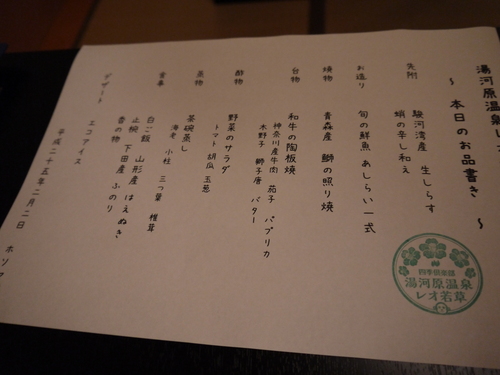 湯河原温泉
〜 本日のお品書き 〜
先附
駿河湾産 生しらす
蛸の辛し和え
お造り
旬の鮮魚 あしらい一式
焼物
青森産 鰤の照り焼
台物
和牛の陶板焼
神奈川産牛肉 茄子 パプリカ
木野子 獅子唐 バター
酢物
野菜のサラダ
トマト 胡瓜 玉葱
蒸物
茶碗蒸し
海老 小柱 三つ葉 椎茸
食事
白ご飯 山形産 はえぬき
止椀 下田産 ふのり
香の物
デザート
エコアイス
平成二十五年二月二日
四季倶楽部
湯河原温泉
レオ若草